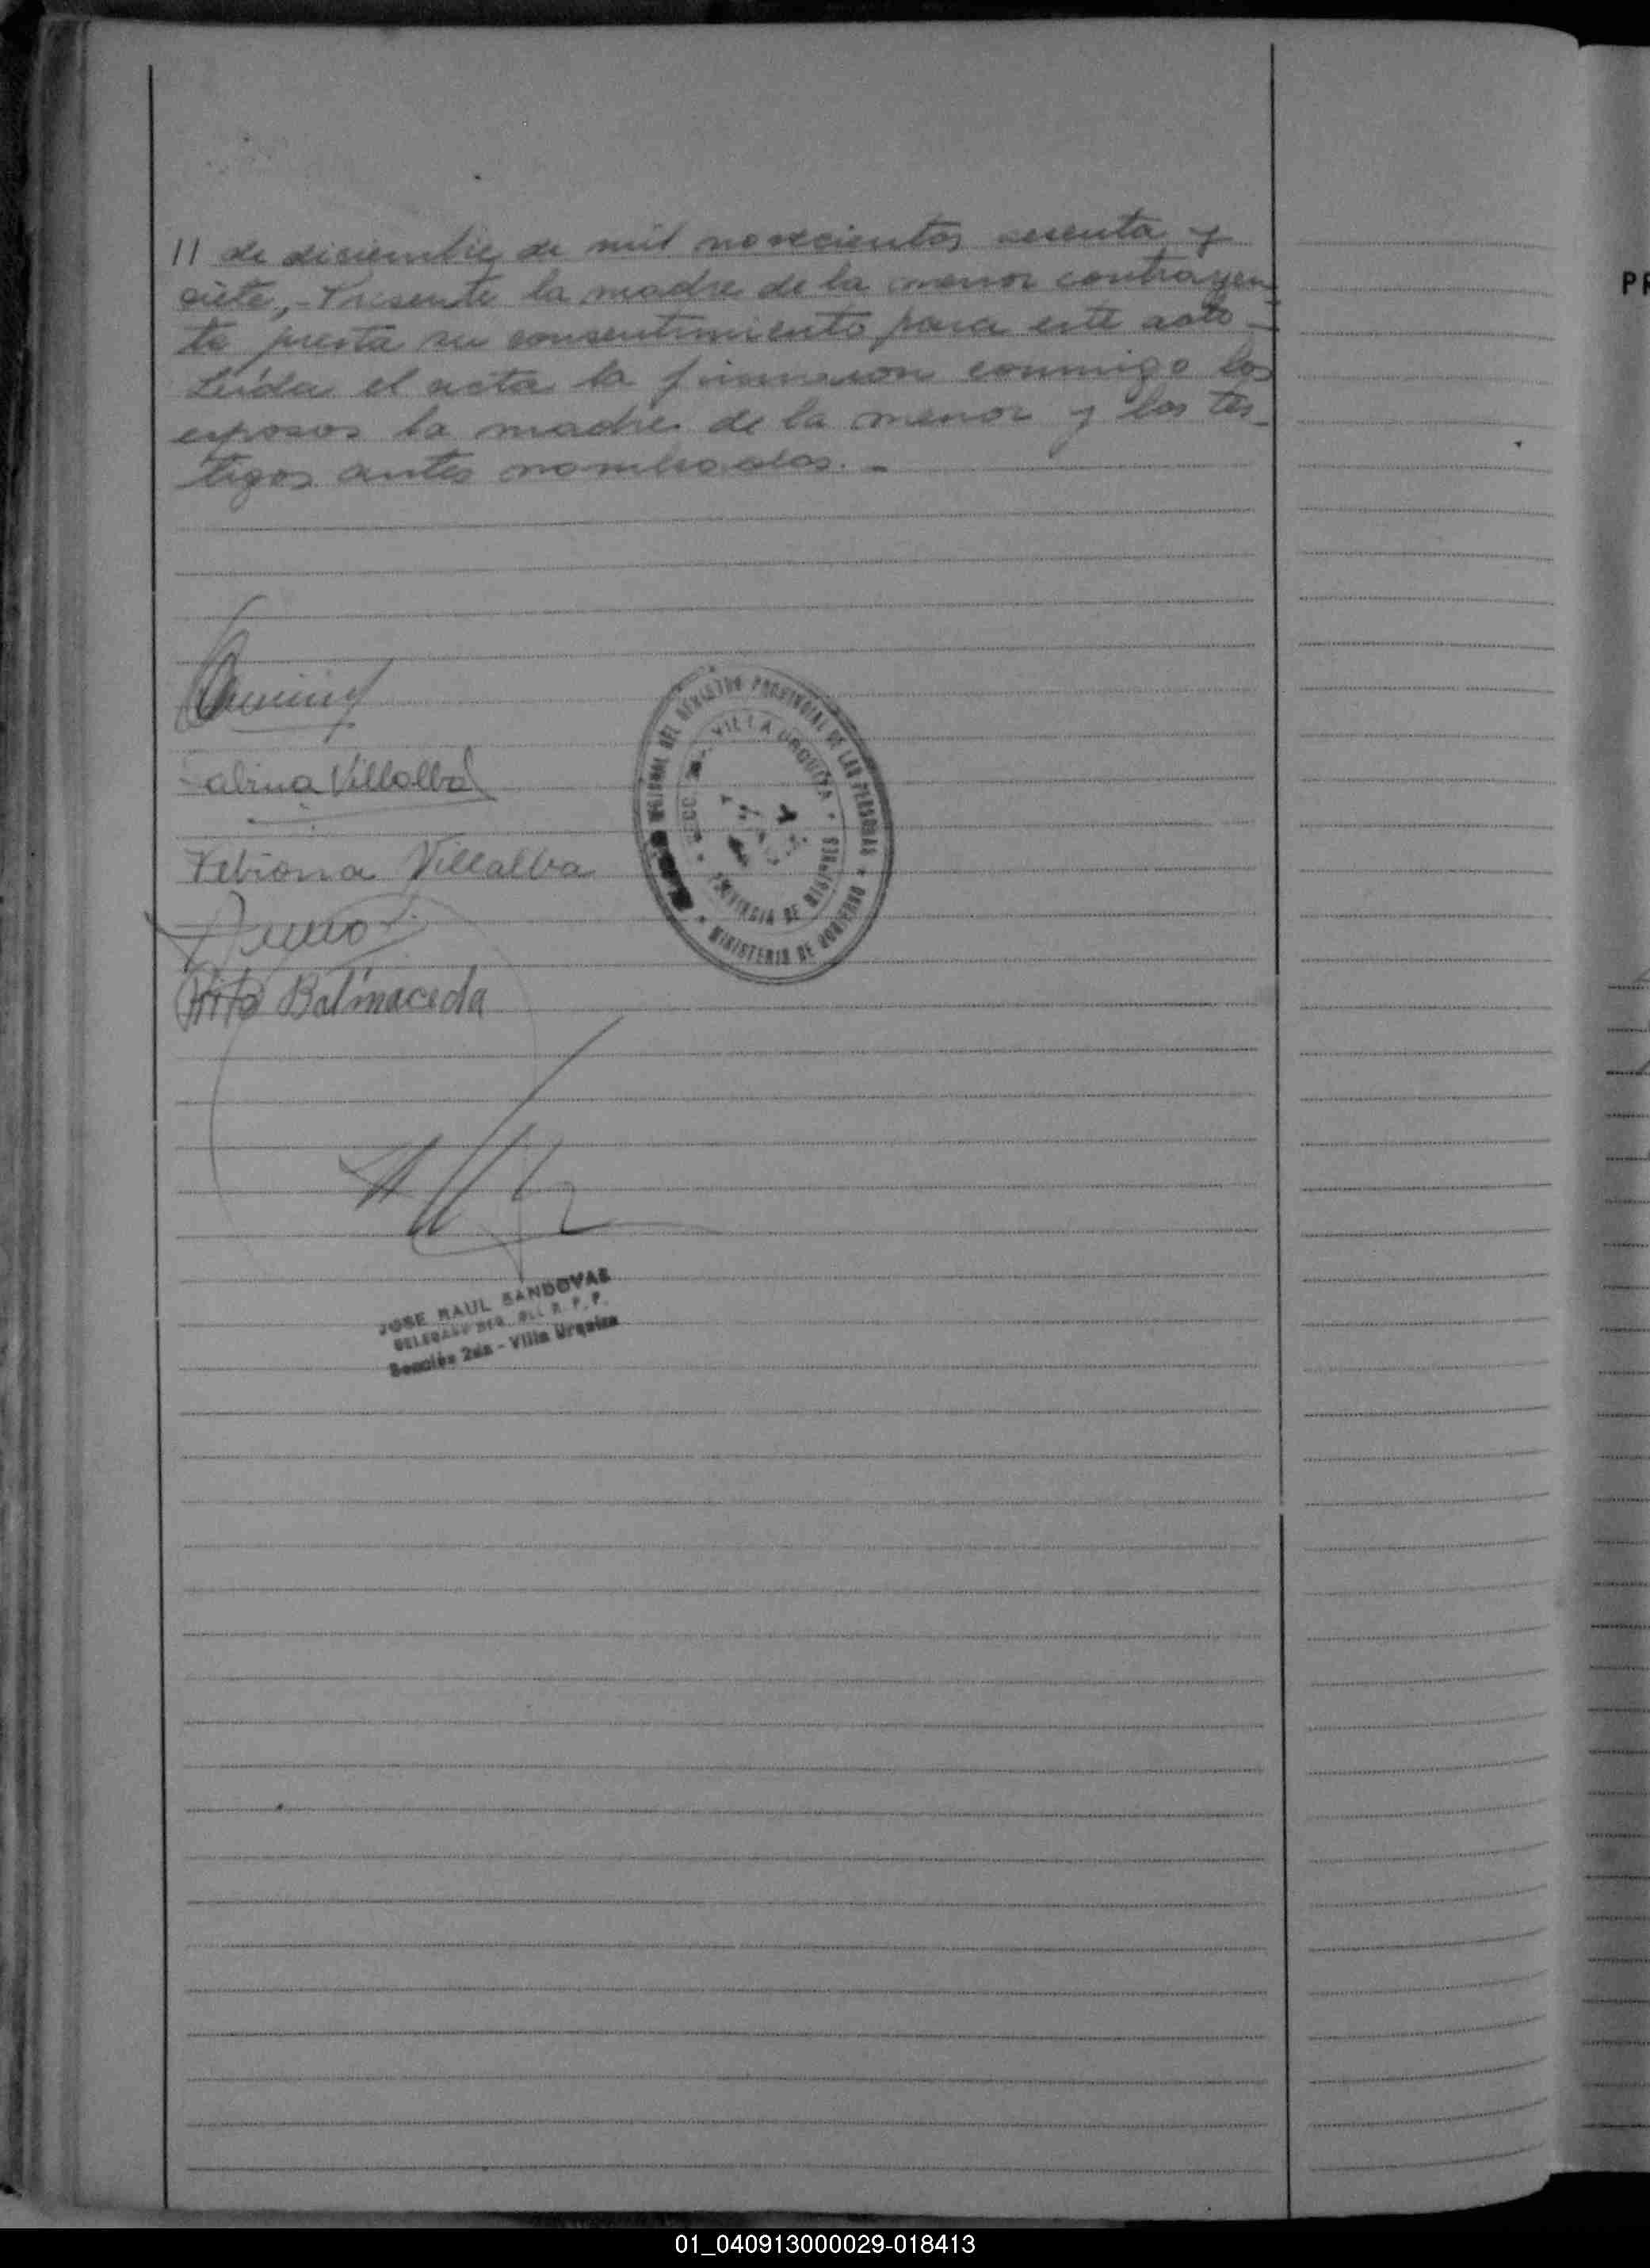 11 de diciembre de mil novecientos sesenta y
siete,- Presente la madre de la menor contrayen-
te presta su consentimiento para este acto -
Leida el acta la firmaron conmigo los
esposos la madre de la menor y los tes-
tigos antes nombrados. -
Villalba
Villalba
Balmaceda
REGISTRO PROVINCIAL DE LAS PERSONAS
MINISTERIO DE GOBIERNO
VILLA URQUIZA
PROVINCIA DE MISIONES
JOSE RAUL SANDOVAL
DELEGADO R. P. P.
Sección 2da - Villa Urquiza
PR
01_040913000029-018413